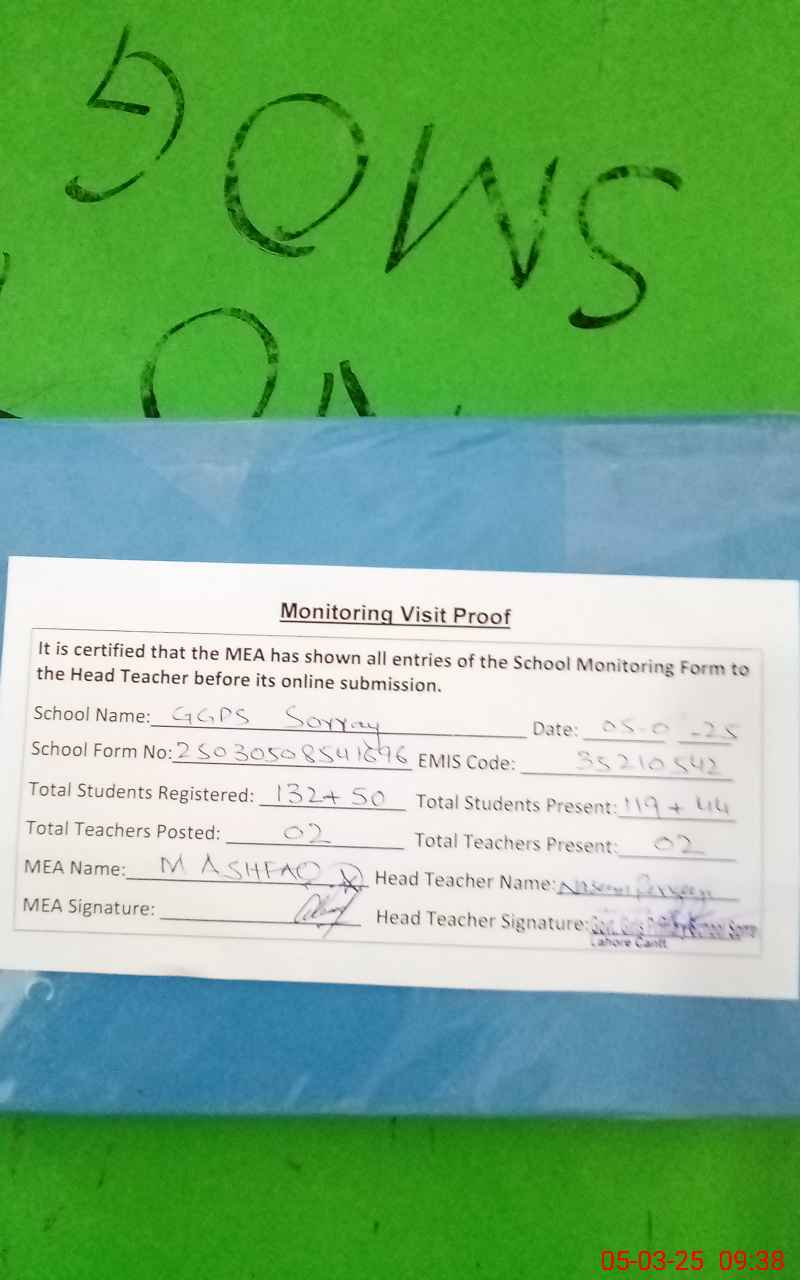 Monitoring Visit Proof
It is certified that the MEA has shown all entries of the School Monitoring Form to
the Head Teacher before its online submission.
School Name: GGPS Sorray Date: 05-0 -25
School Form No: 25030508541696 EMIS Code: 35210542
Total Students Registered: 132+50 Total Students Present: 119+44
Total Teachers Posted: 02 Total Teachers Present: 02
MEA Name: M ASHFAQ Head Teacher Name:
MEA Signature: Head Teacher Signature:
Lahore Cantt
05-03-25 09:38